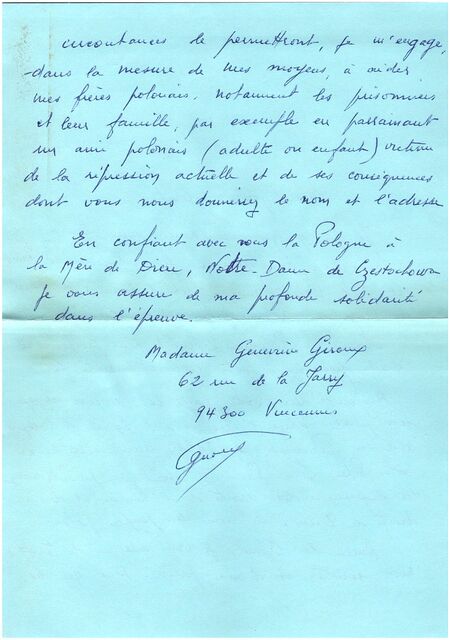 circonstances le permettront, je m'engage,
dans la mesure de mes moyens, à aider
mes frères polonais, notamment les prisonniers
et leur famille, par exemple en parrainant
un ami polonais (adulte ou enfant) victime
de la répression actuelle et de ses conséquences
dont vous nous donnerez le nom et l'adresse
En confiant avec vous la Pologne à
la Mère de Dieu, Notre-Dame de Czestochowa
je vous assure de ma profonde solidarité
dans l'épreuve.
Madame Geneviève Giroux
62 rue de la Jarry
94300 Vincennes